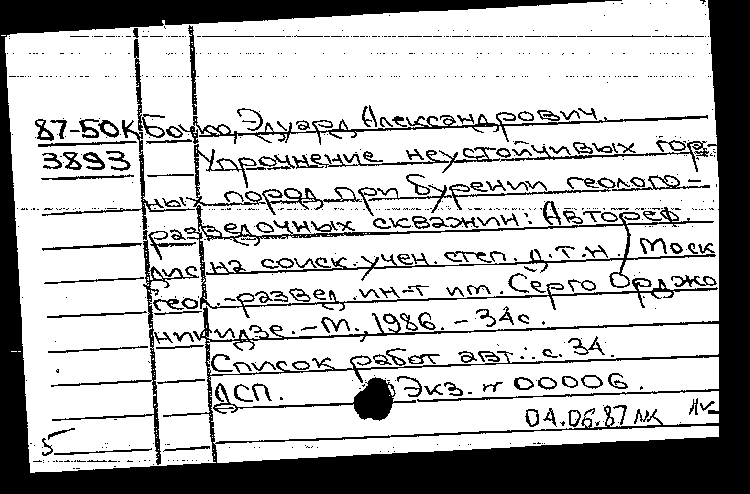 87-50К Бочко, Эдуард Александрович.
3893 Упрочнение неустойчивых гор-
ных пород при бурении геолого-
разведочных скважин: Автореф.
дис на соиск. учен. степ. д.т.н / Моск
геол.-развед. ин-т им. Серго Орджо
никидзе. - М., 1986. - 34 с.
Список работ авт.: с. 34.
ДСП. Экз. № 00006.
04.06.87
5